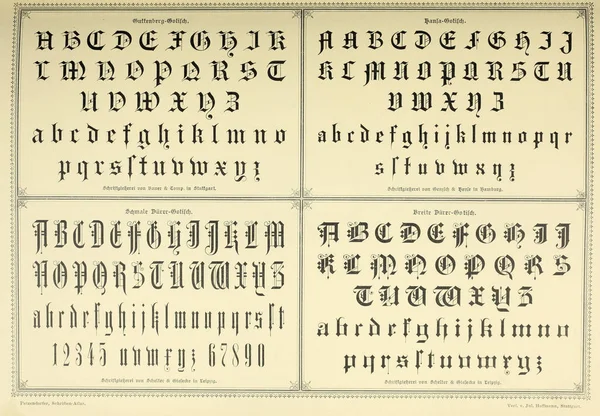 Guttenberg-Gotisch.
A B C D E F G H I K
L M N O P Q R S T
U V W X Y Z
a b c d e f g h i k l m n o
p q r s ſ t u v w x y z
Schriftgießerei von Bauer & Comp. in Stuttgart.
Hansa-Gotisch.
A A B C D E F G H I J
K L M N O P Q R S T U
V W X Y Z
a b c d e f g h i j k l m n o p q r
s ſ t u v w x y z
Schriftgießerei von Genzsch & Heyse in Hamburg.
Schmale Dürer-Gotisch.
A B C D E F G H I J K L M
N O P Q R S T U V W X Y Z
a b c d e f g h i j k l m n o p q r s ſ t
1 2 3 4 5 u v w x y z 6 7 8 9 0
Schriftgießerei von Schelter & Giesecke in Leipzig.
Breite Dürer-Gotisch.
A B C D E F G H I J
K L M N O P Q R S
T U V W X Y Z
a b c d e f g h i j k l m n o
p q r s ſ t u v w x y z
Schriftgießerei von Schelter & Giesecke in Leipzig.
Petzendorfer, Schriften-Atlas.
Verl. v. Jul. Hoffmann, Stuttgart.